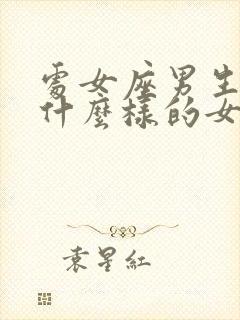 處女座男生
什麼樣的女
袁星紅